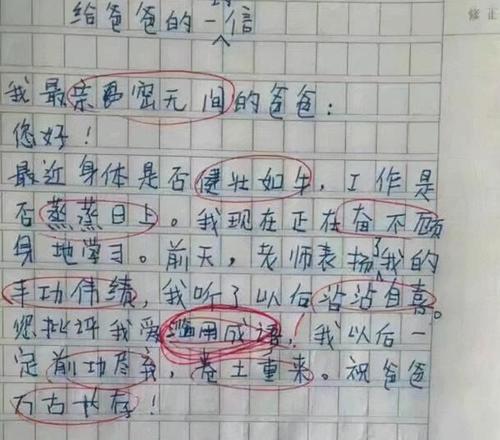 给爸爸的一封信
修正
我最亲密无间的爸爸：
您好！
最近身体是否健壮如牛，工作是
否蒸蒸日上。我现在正在奋不顾
身地学习。前天，老师表扬了我的
丰功伟绩，我听了以后沾沾自喜。
您批评我爱滥用成语！我以后一
定前功尽弃，卷土重来。祝爸爸
万古长存！